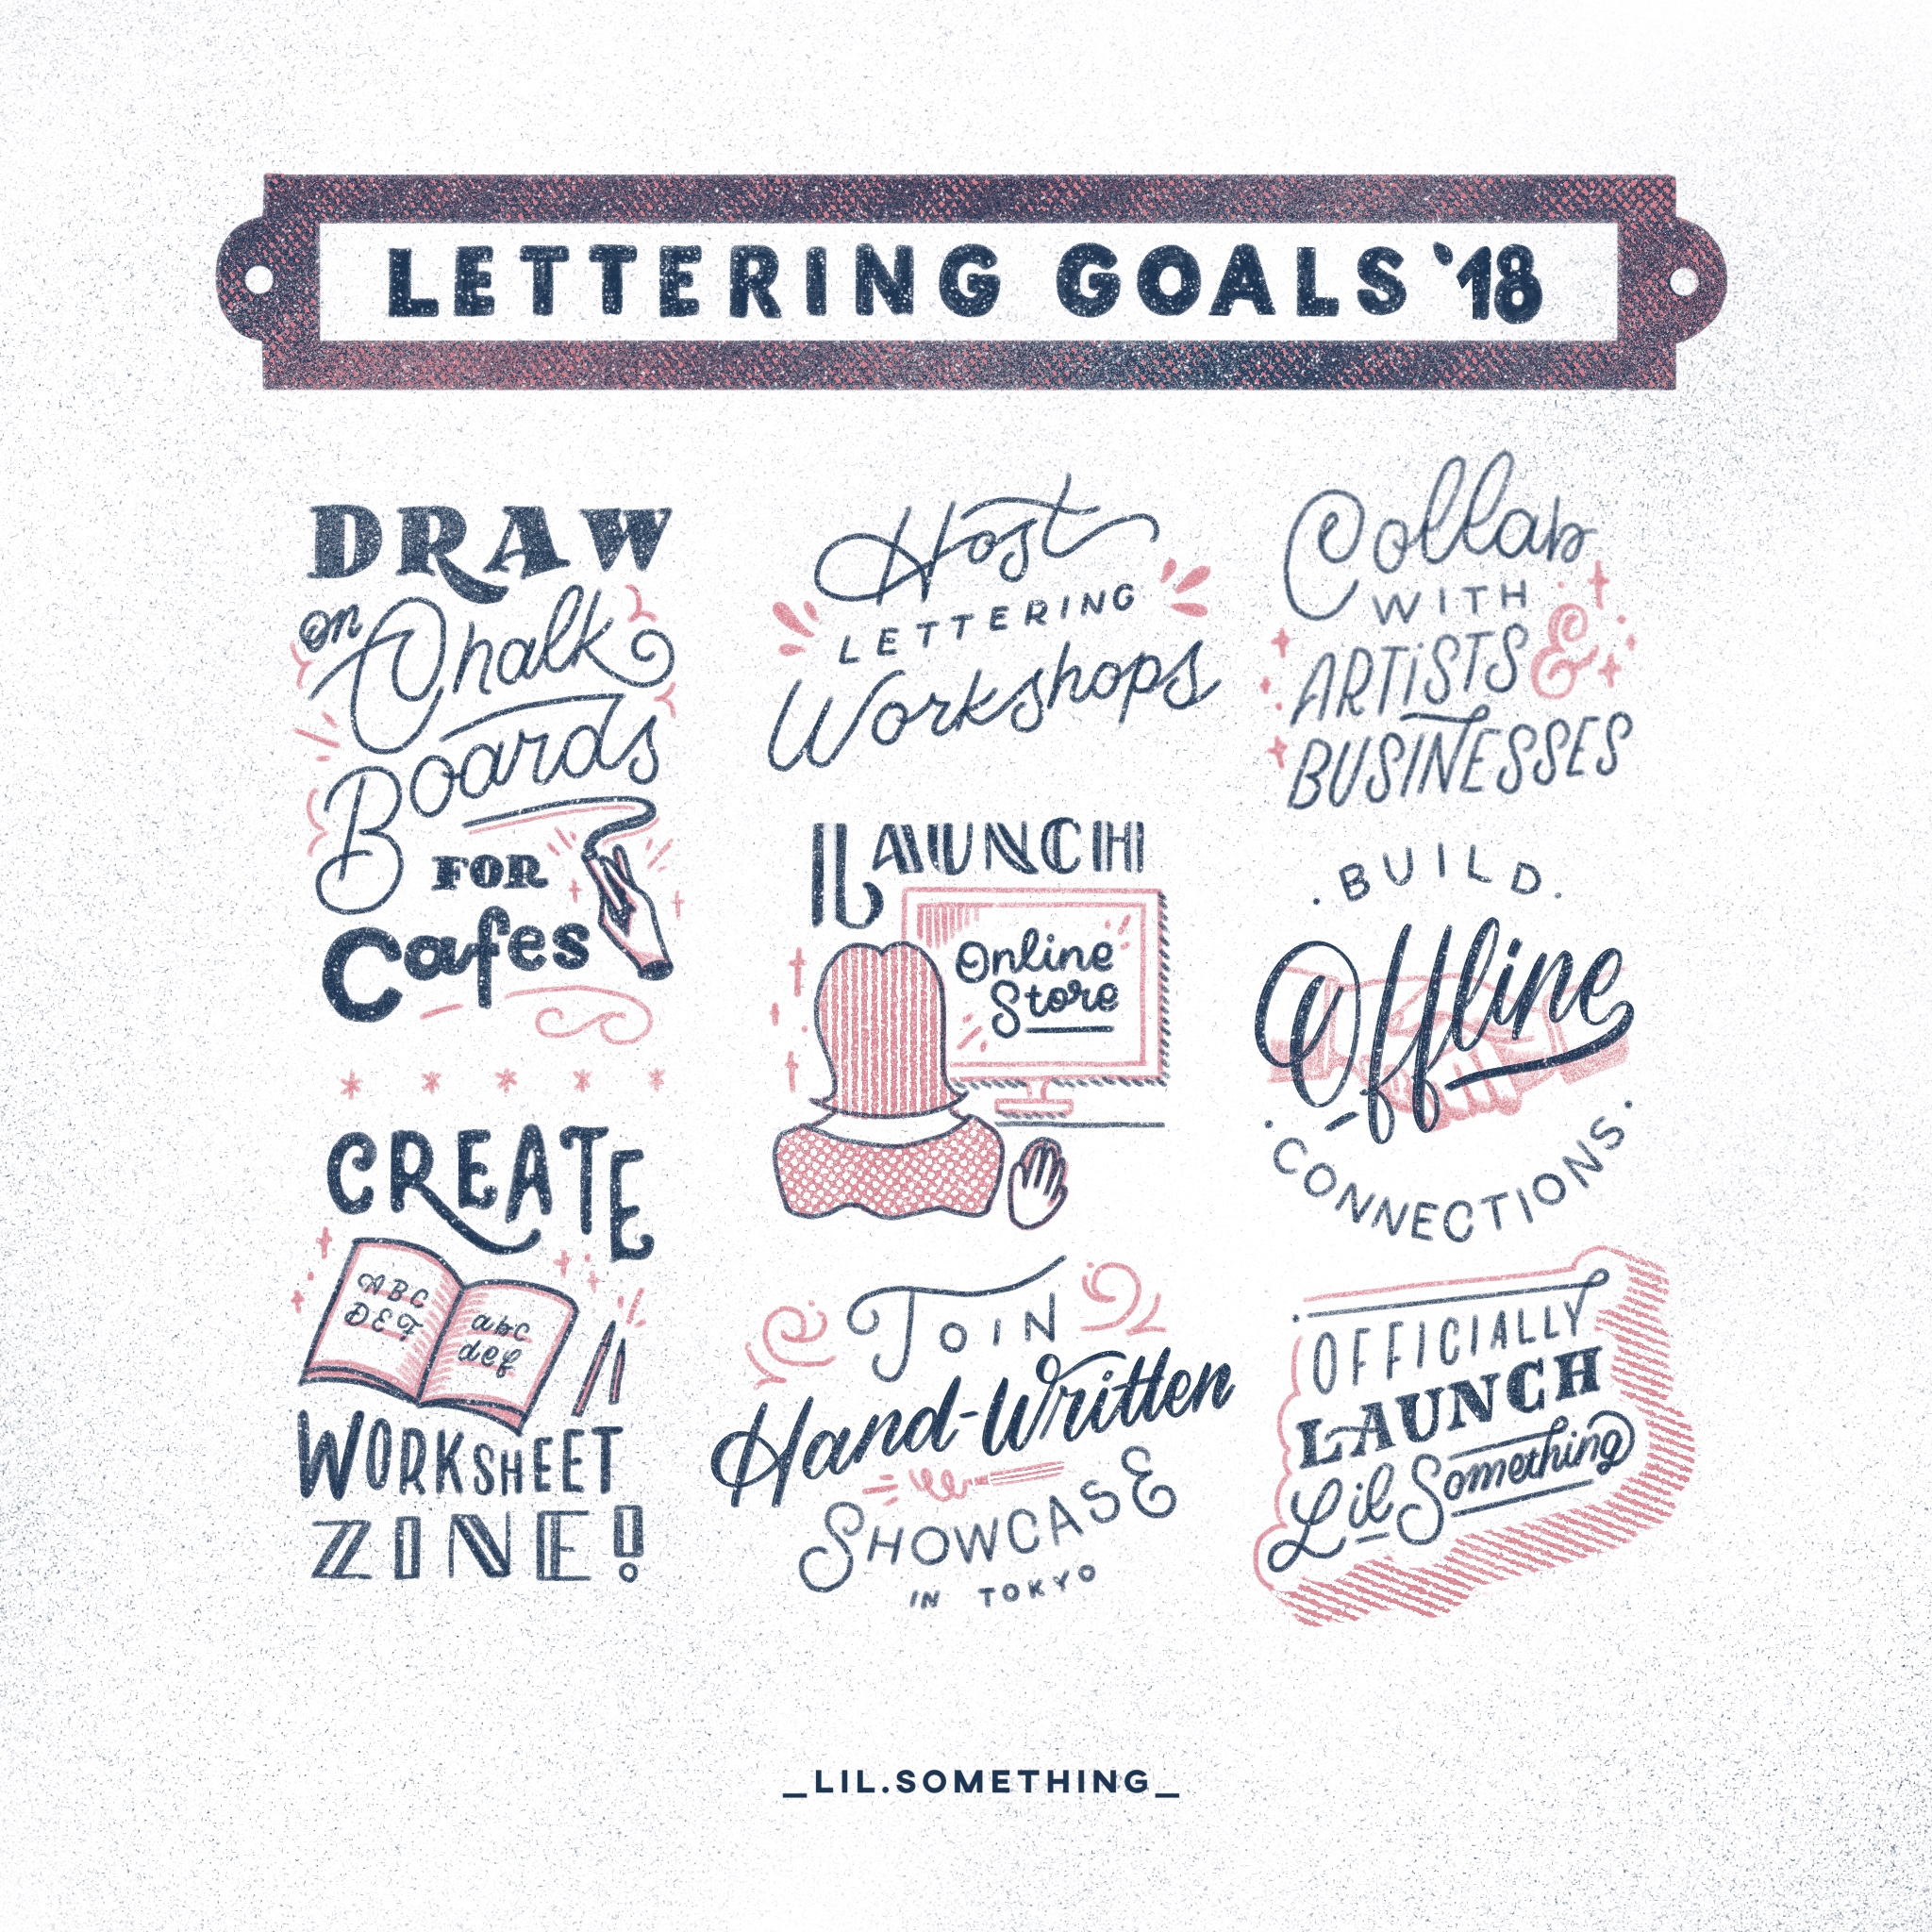 LETTERING GOALS '18
DRAW
on Chalk
Boards
FOR
Cafes
CREATE
ABC
DEF
abc
def
WORKSHEET
ZINE!
Host
LETTERING
Workshops
LAUNCH
Online
Store
JOIN
Hand-Written
SHOWCASE
IN TOKYO
Collab
WITH
ARTiSTS &
BUSINESSES
BUILD
Offline
CONNECTIONS
OFFICIALLY
LAUNCH
Lil Something
_LIL.SOMETHING_